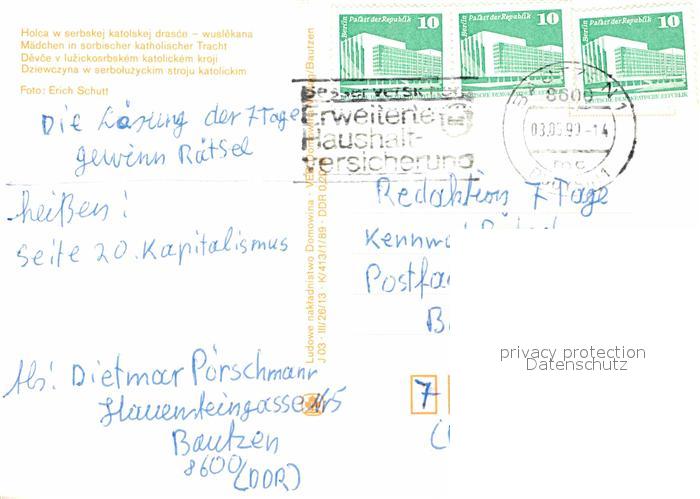 Holca w serbskej katolskej drasće – wuslěkana
Mädchen in sorbischer katholischer Tracht
Děvče v lužickosrbském katolickém kroji
Dziewczyna w serbołużyckim stroju katolickim
Foto: Erich Schutt
Die Lösung der 7 Tage
gewinn Rätsel
heißen!
Seite 20. Kapitalismus
Abs: Dietmar Pörschmann
Bautzen
8600 (DDR)
Ludowe nakładnistwo Domowina · VEB Domowina-Verlag/Bautzen
J 03 · III/26/13 · K/413/1/89 · DDR
Berlin Palast der Republik 10
Berlin Palast der Republik 10
Berlin Palast der Republik 10
Besser versichert
Erweiterte
Haushalt-
versicherung
BAUTZEN 1
8600
03.05.90-14
Redaktion 7 Tage
Postfa
B
7
privacy protection
Datenschutz